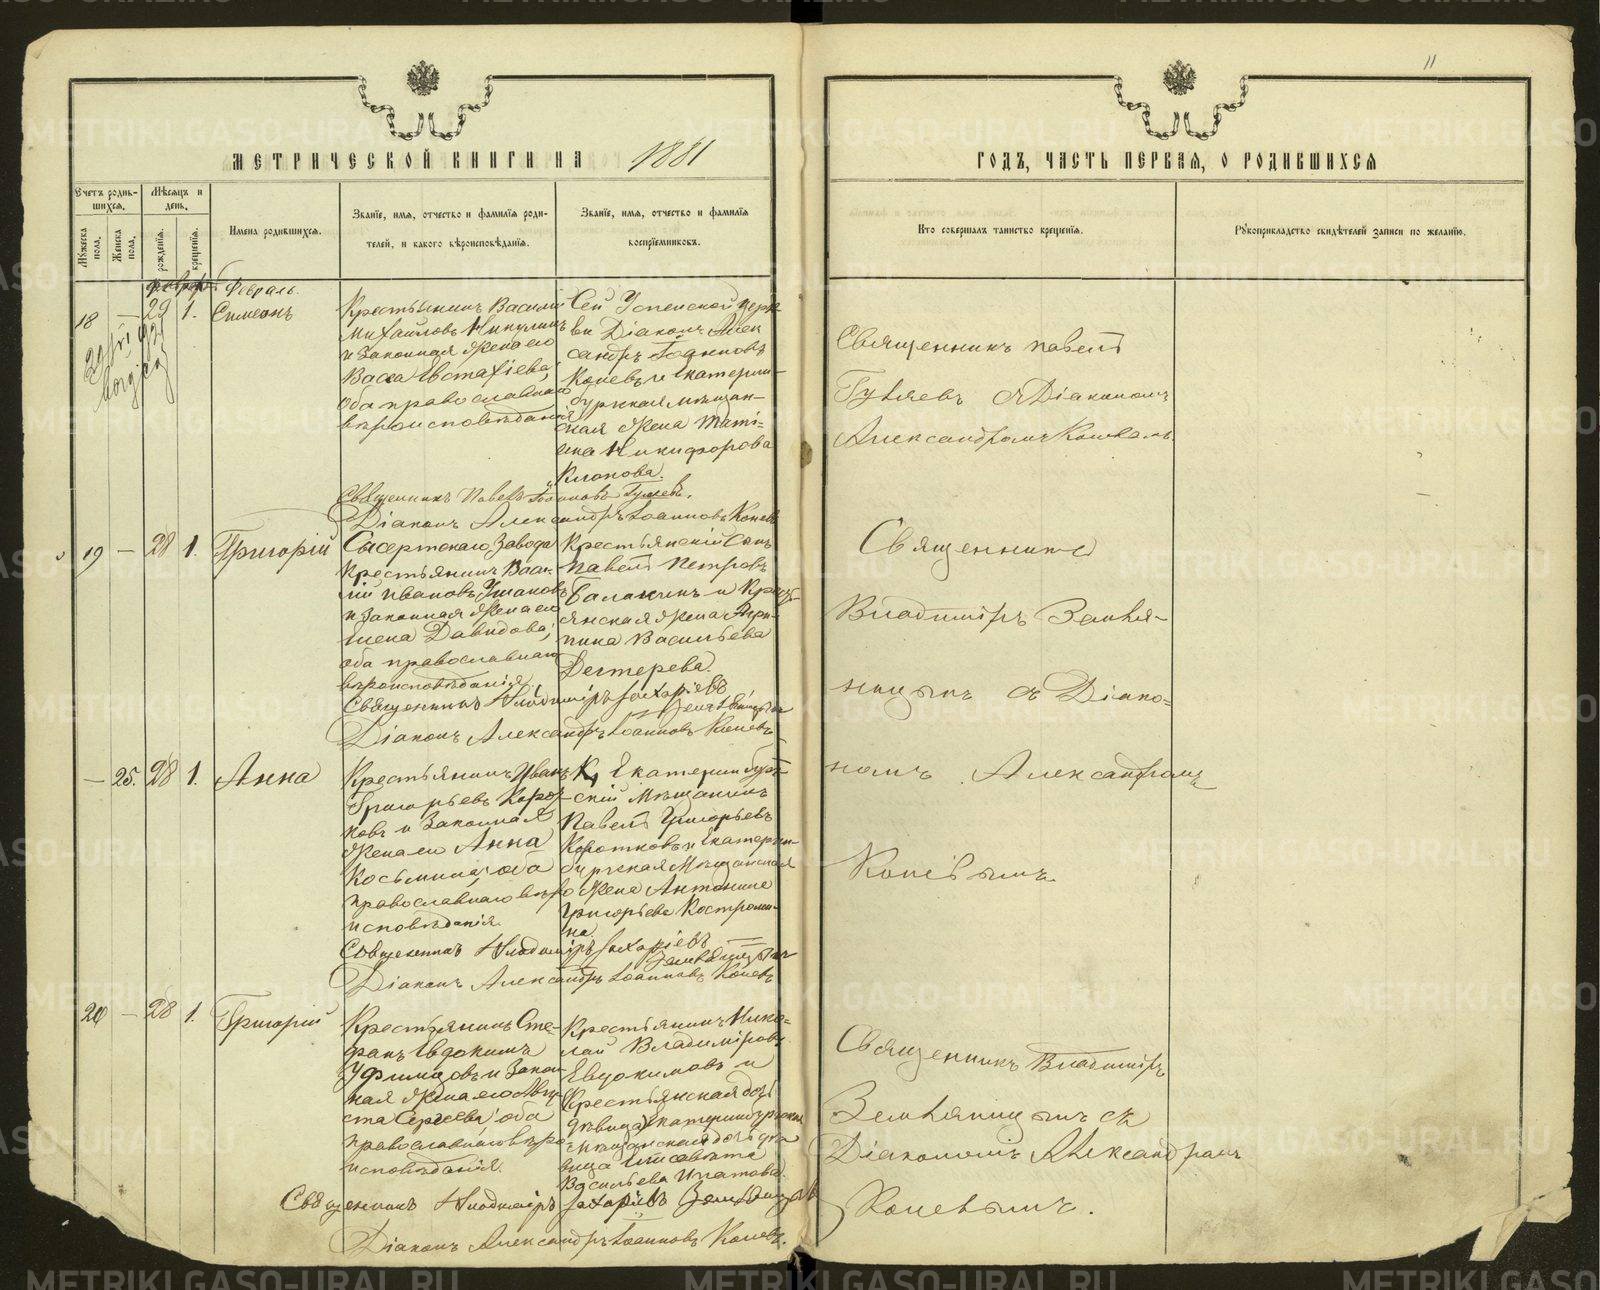 11
МЕТРИЧЕСКОЙ КНИГИ НА 1881
ГОДЪ, ЧАСТЬ ПЕРВАЯ, О РОДИВШИХСЯ
Счетъ родив-
шихся.
Мѣсяцъ и
день.
Мужеска
пола.
Женска
пола.
рожденія.
крещенія.
Имена родившихся.
Званіе, имя, отчество и фамилія роди-
телей, и какого вѣроисповѣданія.
Званіе, имя, отчество и фамилія
воспріемниковъ.
Кто совершалъ таинство крещенія.
Рукоприкладство свидѣтелей записи по желанію.
Февраль
18 — 29 1. Симеонъ
Крестьянинъ Василій
Михайловъ Никулинъ
и законная жена его
Васса Евстафіева,
оба православнаго
вѣроисповѣданія
Сей Успенской церк-
ви Діаконъ Алек
сандръ Іоанновъ
Коневъ и Екатерин-
бургская мѣщан-
ская жена
Никифорова
Клопова.
Священникъ Павелъ Іоанновъ Гуляевъ.
Діаконъ Александръ Іоанновъ Коневъ
Священникъ Павелъ
Гуляевъ съ Діакономъ
Александромъ Коневымъ
19 — 28 1. Григорій
Сысертскаго Завода
крестьянинъ Васи-
лій Ивановъ Ушаковъ
и законная жена его
Елена Давидова;
оба православнаго
вѣроисповѣданія.
Крестьянскій сынъ
Павелъ Петровъ
Балакинъ и Крест-
янская жена Агри-
пина Васильева
Дегтерева.
Священникъ Владиміръ Захаріевъ
Земляницынъ
Діаконъ Александръ Іоанновъ Коневъ
Священникъ
Владиміръ Земля-
ницынъ съ Діако-
номъ Александромъ
Коневымъ
— 25. 28 1. Анна
Крестьянинъ Иванъ
Григорьевъ Корот-
ковъ и законная
жена его Анна
Косьмина; оба
православнаго вѣро
исповѣданія.
Екатеринбург-
скій мѣщанинъ
Павелъ Григорьевъ
Коротковъ и Екатерин-
бургская мѣщанская
жена Антонина
Григорьева Костроми-
на.
Священникъ Владиміръ Захаріевъ
Земляницынъ
Діаконъ Александръ Іоанновъ Коневъ
20 — 28 1. Григорій
Крестьянинъ Сте-
фанъ Евдокимъ
Уфимцовъ и закон-
ная жена его Авгу-
ста Сергѣева; оба
православнаго вѣро
исповѣданія.
Крестьянинъ Нико-
лай Владиміровъ
Евдокимовъ и
Крестьянская дочь
дѣвица Екатеринбургская
мѣщанская дочь дѣ
вица Елисавета
Васильева Ипатова.
Священникъ Владиміръ Захаріевъ Земляницынъ
Діаконъ Александръ Іоанновъ Коневъ.
Священникъ Владиміръ
Земляницынъ съ
Діакономъ Александромъ
Коневымъ.
METRIKI.GASO-URAL.RU